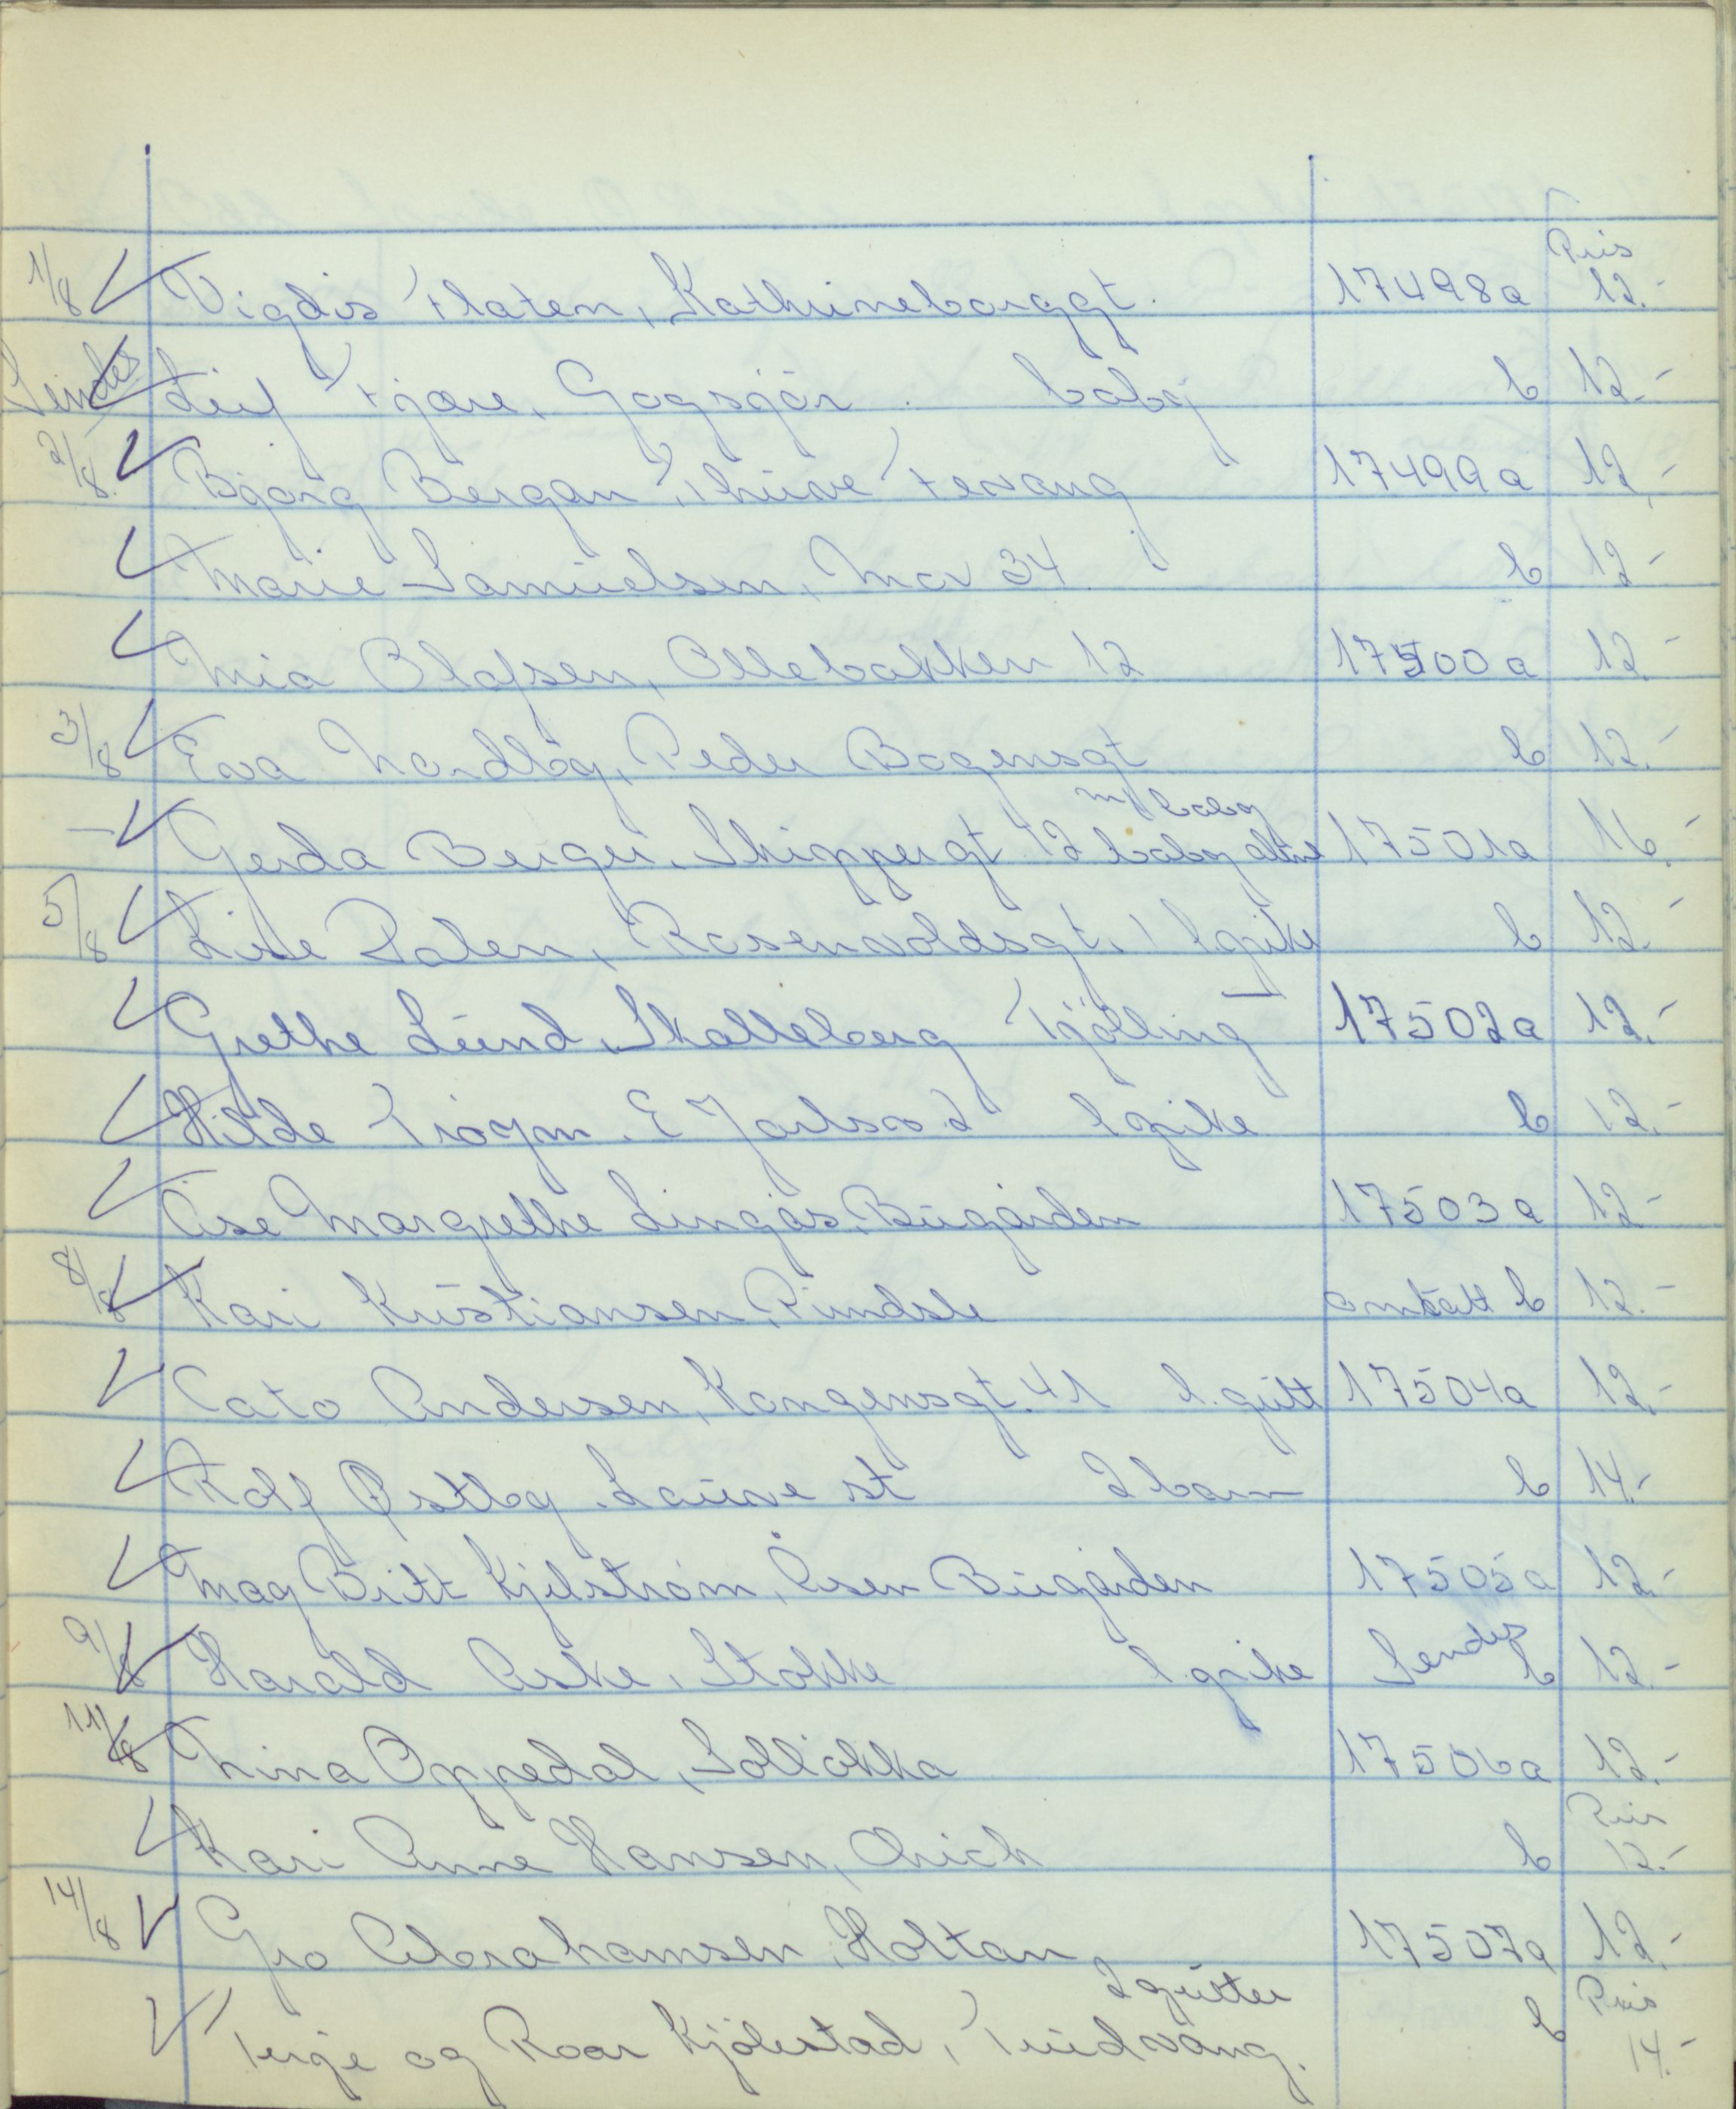 Pris
1/8 Vigdis Flaten, Kathrineborggt. 17498a 12.-
Sendes Leif Fjære, Gogsjør. baby b 12.-
2/8 Bjørg Bergan, Thune Fevang 17499a 12,-
Marie Samuelsen, Mov 34 b 12-
Mia Olafsen, Ollebakken 12 17500a 12.-
3/8 Eva Nordby, Peder Bogensgt b 12.-
m/ baby
- Gerda Berger, Skippergt 12 baby alene 17501a 16.-
5/8 Lise Dalen, Rosenvoldsgt. 1 1 pike b 12.-
Grethe Lund, Skalleberg Tjölling 17502a 12.-
Hilde Trøym. E Jarlsv. 2 1 pike b 12.-
Åse Margrethe Lingås, Bugården 17503a 12-
8/8 Kari Kristiansen, Pindsle omtatt b 12.-
Cato Andersen, Kongensgt. 41 1. gutt 17504a 12.-
Rolf Østby, Lauve st 2 barn b 14.-
May Britt Kjelstrøm, Åsen Bugården 17505a 12.-
9/8 Harald Aske, Stokke 1. pike Sendes b 12.-
11/8 Nina Oppedal, Solløkka 17506a 12.-
Pris
Kari Anne Hansen, Chich b 12.-
14/8 Gro Abrahamsen, Holtan 17507a 12.-
2 gutter Pris
Terje og Roar Kjölestad, Tuidvang. b 14.-